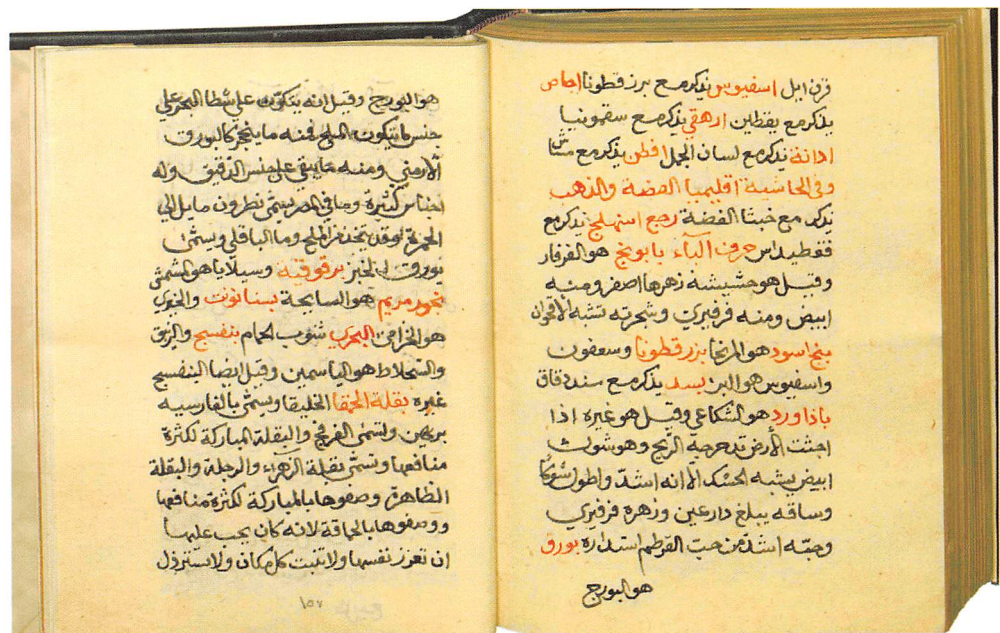 قرن ايل اسفيوس يذكر مع بزر قطونا اجاص
يذكر مع يقطين ارهقي يذكر مع سقمونيا
اذانة يذكر مع لسان الجمل افطن يذكر مع
وفي الحاشية اقليميا الفضة والذهب
يذكر مع خبث الفضة رجع اسهلج يذكر مع
حرف الباء بابونج هو الفرفار
وقيل هو حشيشه زهرها اصفر ومنه
ابيض ومنه فرفيري وشجرته تشبه الاقحوان
بنج اسود هو المرنجا بزر قطونا وسعفون
واسفيوس هو البزر بسد يذكر مع سنددقاق
باذاورد هو الشكاعى وقيل هو غيره اذا
اجثت الأرض تدحرجة الريح وهو شوك
ابيض يشبه الحسك الا انه اشد واطول شوكا
وساقه يبلغ ذارعين وزهره فرفيري
وحبه اشد من حب القرطم استداره بورق
هو البورج
هو البورج وقيل انه يتكون على شطا البحر على
جنس ما يتكون الملح فمنه ما ينحجر كالبورق
الأرمني ومنه ما يبقى على جنس الدقيق وله
اجناس كثيرة وما في المصر يسمى نطرون مايل الى
الحمرة وقد يتخذ من الملح وما الباقلى ويسمى
بورق الخبز برقوقية وسيلايا هو المشمش
بخور مريم هو السابحة بسنانونت والخيرى
هو الخزامى البحري شوب الحمام بنفسج والزنبق
والسجلاط هو الياسمين وقيل ايضا البنفسج
غيره بقلة الحمقا الخليقا وتسمى بالفارسيه
بريهن وتسمى الفرفخ والبقلة المباركة لكثرة
منافعها وتسمى بقلة الزهراء والرجلة والبقلة
الظاهرة وصفوها بالمباركة لكثرة منافعها
ووصفوها بالحماقة لانه كان يجب عليها
ان تعزز نفسها ولا تنبت كل مكان ولا تسترذل
١٥٧